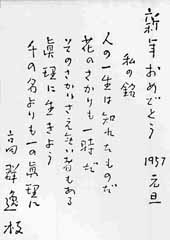 新年おめでとう 1957 元旦
私の銘
人の一生は知れたものだ
花のさかりも一時だ
そのさかりさえない者もある
眞理に生きよう
千の名よりも一の眞理に
高群逸枝